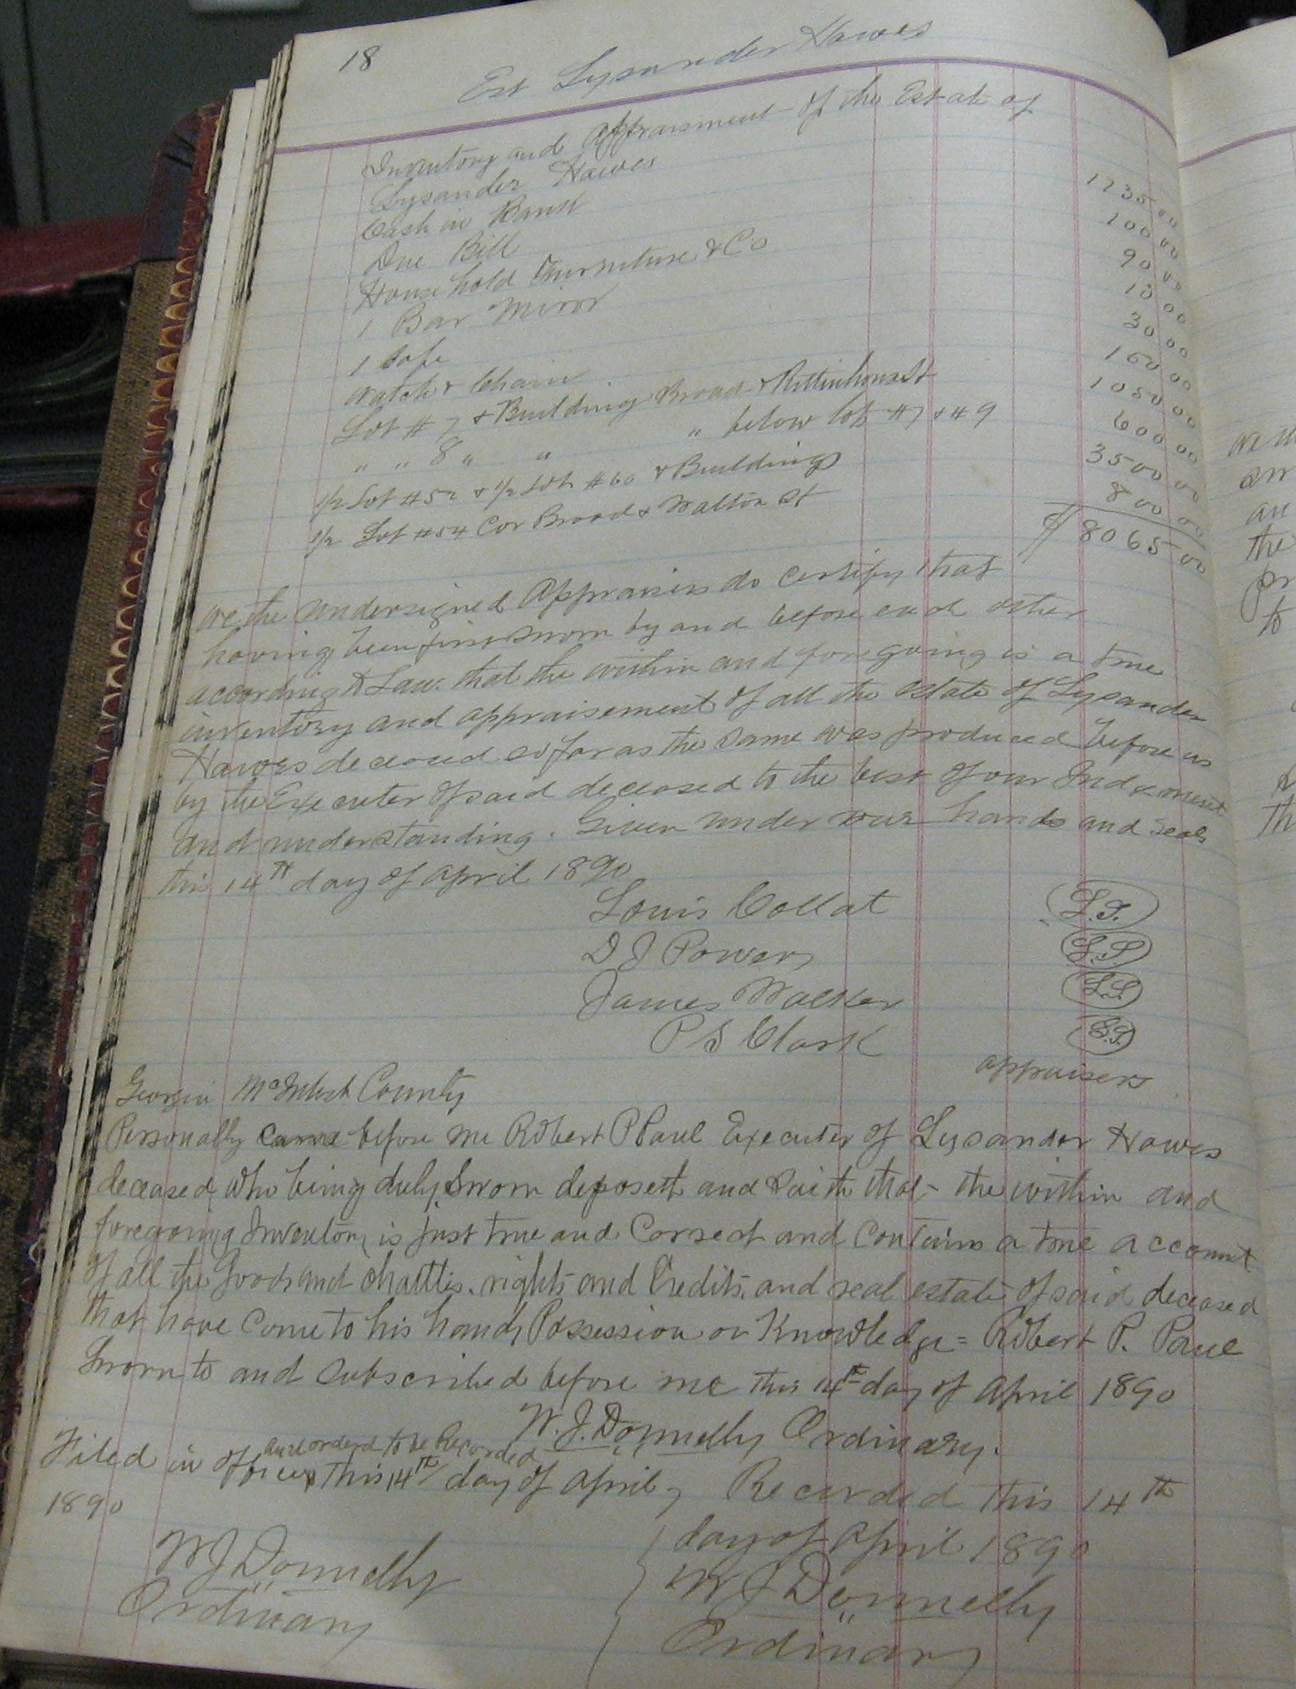 18
Est Lysander Hawes
Inventory and Appraisment of the Estate of
Lysander Hawes
Cash in Bank 1735 00
Due Bill 100 00
House hold Furniture & Co 90 00
1 Bar Miror 00
1 Safe 30 00
Watch & Chain 00
Lot # 7 & Building Broad & Rittenhouse St 1050 00
" " 8 " " " below lot #7 & #9 600 00
1/2 Lot #52 & 1/2 Lot #60 & Buildings 3500 00
1/2 Lot #54 Cor Broad & Walton St 800 00
$ 8065 00
We the undersigned Appraisers do certify that
having been first sworn by and before each other
according to Law. that the within and foregoing is a true
inventory and appraisement of all the estate of Lysander
Hawes deceased so far as the same was produced before us
by the Executer of said deceased to the best of our Judgement
and understanding. Given under our hands and seals
this 14th day of April 1890
Louis Collat L.S.
D J Powers L.S.
James Walker L.S.
P S Clark L.S.
appraisers
Georgia McIntosh County
Personally came before me Robert P Paul Executer of Lysander Hawes
deceased, who being duly Sworn deposeth and Saith that the within and
foregoing Inventory is just true and Correct and Contains a true account
of all the Goods and chattles. rights and Credits, and real estate of said deceased
that have Come to his hands Possession or Knowledge = Robert P. Paul
Sworn to and Subscribed before me this 14th day of April 1890
W. J. Donnelly Ordinary.
and orderd to be Recorded
Filed in office this 14th day of April
1890
W J Donnelly
Ordinary
Recorded this 14th
day of April 1890
W J Donnelly
Ordinary